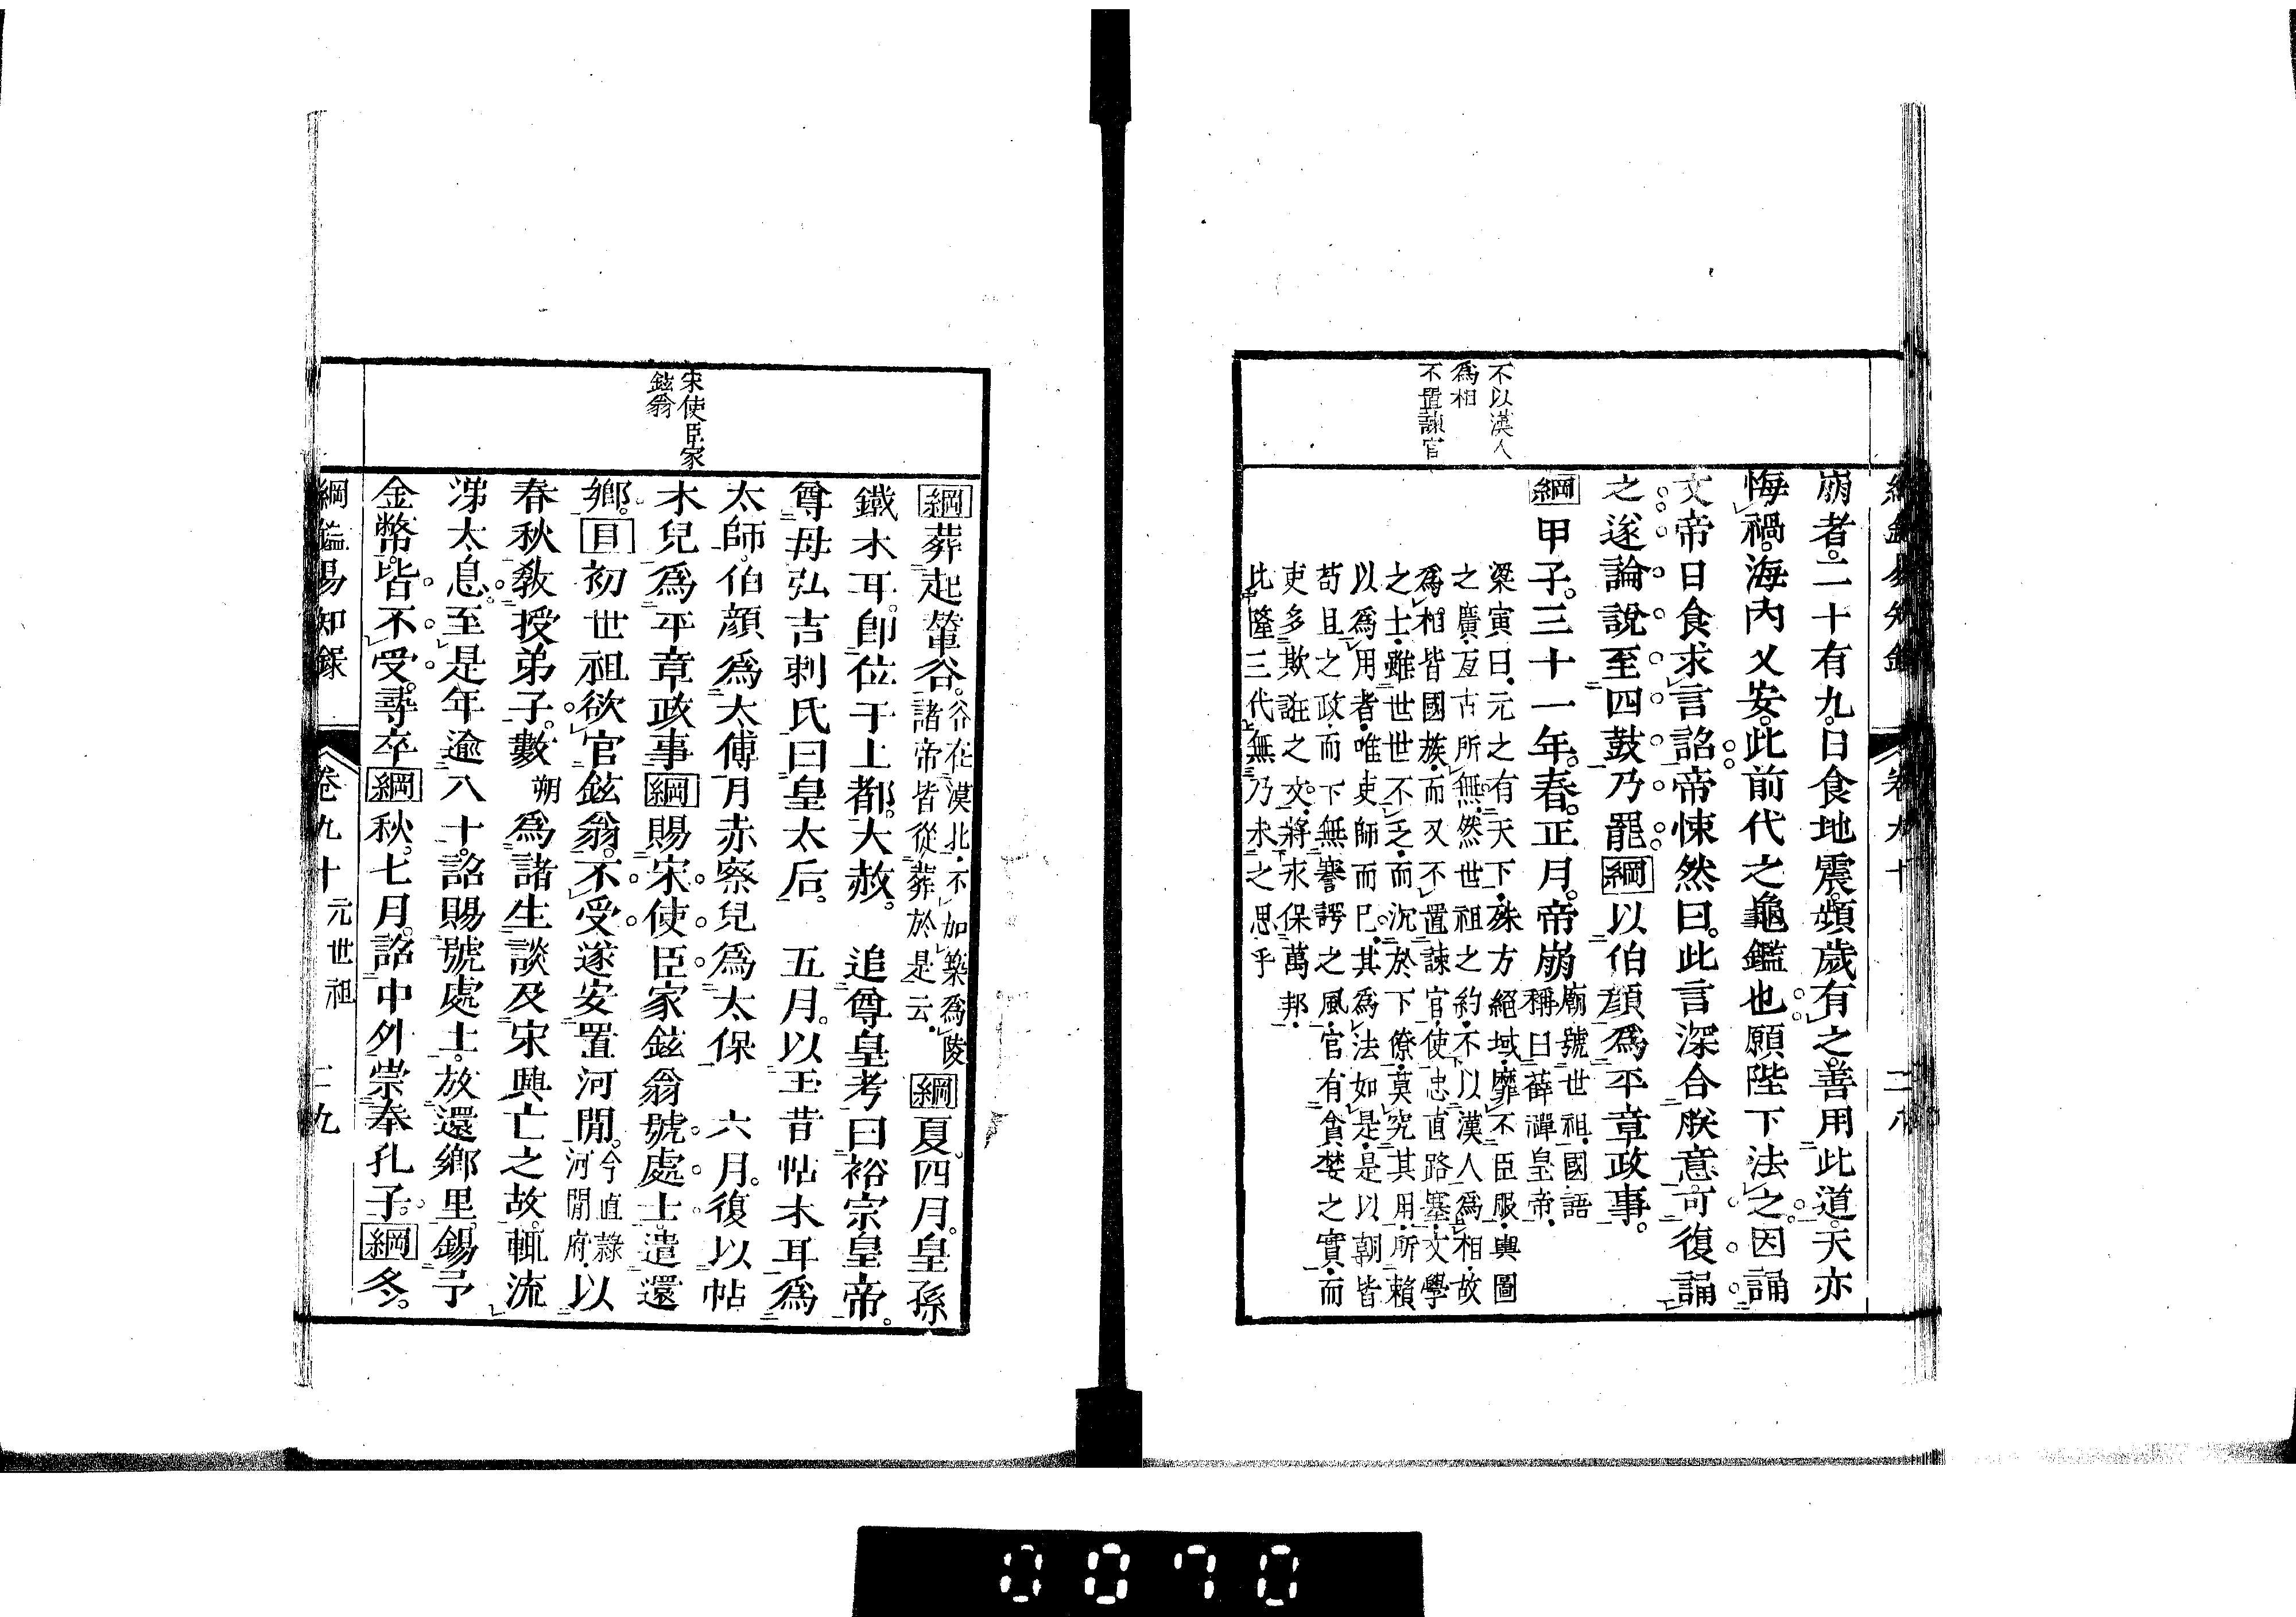 綱鑑易知錄 卷九十 二八
不以漢人
爲相
不置諫官
崩者。二十有九。日食地震。頻歲有之。善用此道。天亦
悔禍。海內乂安。此前代之龜鑑也。願陛下法之。因誦
文帝日食求言詔。帝悚然曰。此言深合朕意。可復誦
之。遂論說至四鼓乃罷。綱以伯顏爲平章政事。
綱甲子。三十一年。春。正月。帝崩廟號世祖。國語
稱曰薛禪皇帝。
梁寅曰。元之有天下。殊方絕域。靡不臣服。輿圖
之廣。亙古所無。然世祖之約。不以漢人爲相。故
爲相皆國族。而又不置諫官。使忠直路塞。文學
之士。雖世世不乏。而沉於下僚。莫究其用。所賴
以爲用者。唯吏師而已。其爲法如是。是以朝皆
苟且之政。而下無謇諤之風。官有貪婪之實。而
吏多欺誑之文。將永保萬邦。
比隆三代。無乃未之思乎
宋使臣家
鉉翁
綱葬起輦谷。谷在漠北。不加築爲陵
諸帝皆從葬於是云。綱夏四月。皇孫
鐵木耳。卽位于上都。大赦。 追尊皇考曰裕宗皇帝。
尊母弘吉剌氏曰皇太后。 五月。以玉昔帖木耳爲
太師。伯顏爲太傅。月赤察兒爲太保 六月。復以帖
木兒爲平章政事綱賜宋使臣家鉉翁號處士。遣還
鄉。目初世祖欲官鉉翁。不受。遂安置河閒。今直隸
河閒府。以
春秋教授弟子。數朔爲諸生談及宋興亡之故。輒流
涕太息。至是年逾八十。詔賜號處士。放還鄉里。錫予
金幣。皆不受。尋卒綱秋。七月。詔中外崇奉孔子。綱冬。
綱鑑易知錄 卷九十 元世祖 二九
0070